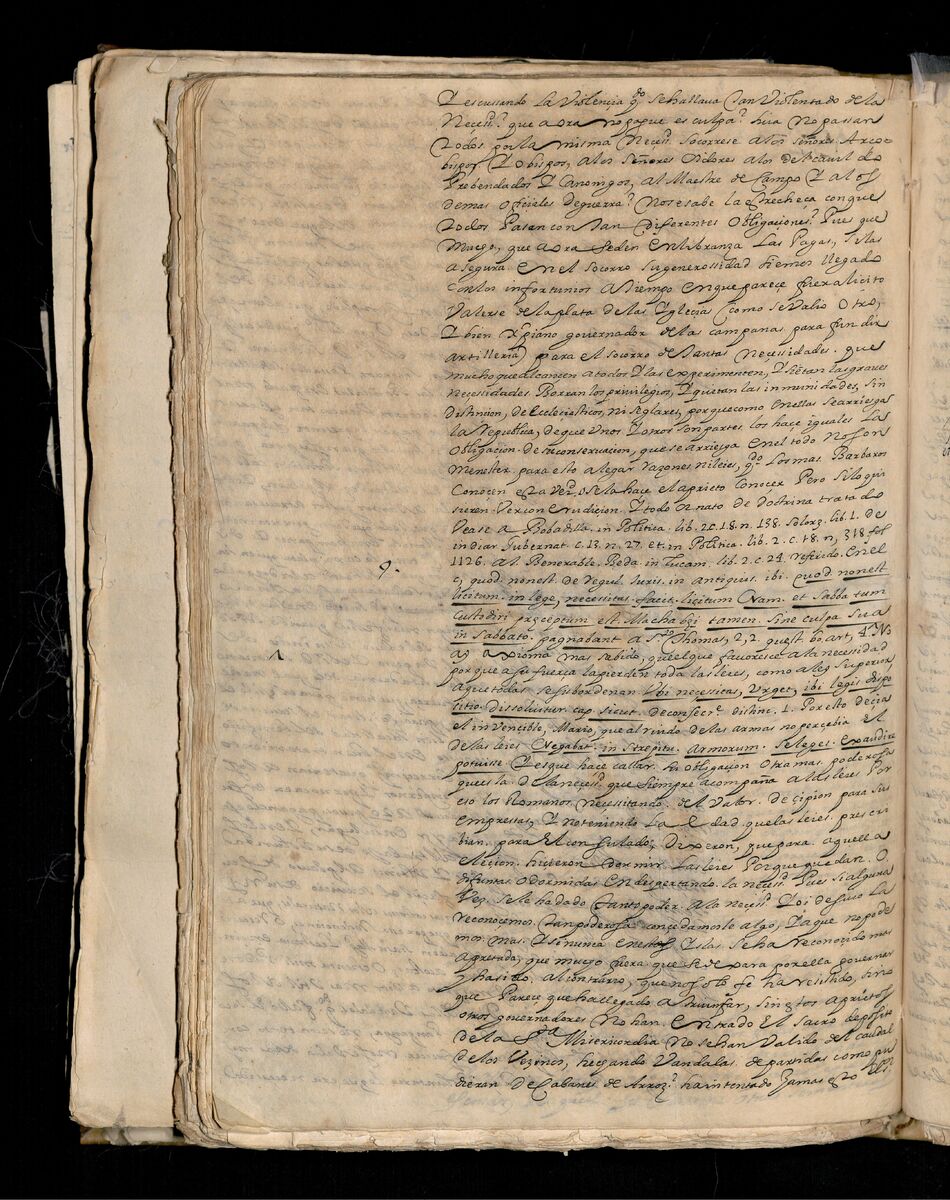 Y escussando La Violençia q.do se hallaua tan Violentado de la
Necess.d que aora no pague es culpa? hu̅a no passan
todos por la misma Necess.d socorrese a los señores Arço-
bispos, Y obispos, a los señores Oidores a los del cauil do
Prebendados Y Canonigos, al Maestre de Campo Y a los
demas oficiales de guerra? No se sabe la estrecheça con que
todos Passan con tan diferentes obligaciones? Pues que
Mucho, que aora se den en libranza Las Pagas, si las
asegura en el socorro su generossidad hemos llegado
con los infortunios a tiempo en que parece fuera licito
Valerse de la plata de las Yglecias (como se Valio otro,
Y bien xpiano gouernador de la campanas para fun dir
artilleria) para el socorro de tantas Necessidades. que
mucho que alcançen a todos Y las experimenten, Y si tan las graues
necessidades Borran los priuilegios, Y quetan las in munidades, sin
distincion, de Ecclesiasticos, ni seglares, porque como en ellas se arriesga
la Republica, de que Unos Y otros son partes los hace iguales La
obligacion de su conseruacion, que se arriesga en el todo No son
Menester para esto alegar razones ni leies, q.do Los mas Barbaros
Conocen esta Ver.d, o se la hace el aprieto Conocer Pero si lo qui
sieren Ver con erudicion Y todo ornato de doctrina tratado
Vease a Bobadilla. in Politica. lib. 2. c. 18. n. 138. Solorz. lib. 1. de
indiar. Gubernat. c. 13. n. 27. et in Politica. lib. 2. c. 18. n, 318 fol
1126. al Benerable. Beda. in Lucam. lib. 2. c. 24. referido. en el
9.
c, quod. non est. de regul. Iuris. in antiquis. ibi. quod. non est
licitum. in lege, necessitas. facit. licitum Nam. et Sabba tum
Custodiri præceptum est. Machabei tamen. sine culpa sua
in sabbato. pugnabant a S.to Thomas, 2, 2. quest. 60. art, 4. No
ay axioma mas sabido, que el que fauoresce a la necesidad
porque a su fuerça la pierden toda las leies, como a ley superior
a que todas se subordenan Ubi necessitas, Urget, ibi legis dispo
sitio dissoluitur. cap. sicut. de consecr.e distinc. 1. Por esto deçia
el inVencible, Mario, que al ruido de las armas no percebia el
de las leies Negabat. in strepitu. armorum. se leges. exaudire
potuisse. Y es que hace callar. su obligacion otra mas. poderosa
que es la. de la neces.d que siempre acompaña a las leies Por
eso los Romanos. necessitando. del Valor. de çipion para sus
empressas, Y no teniendo La edad que las leies. prescri
bian. para el consulado, Dixeron, que para. aquella
eleçion. hicieron dormir. Las leies Porque quedan. o
difuntas o dormidas en despertando. la neces.d Pues si alguna
Vez. se le ha dado tanto poder. a la neces.d Y oi de suso La
reconoçemos. tan poderosa conçedamosle algo, Ya que no pode
mos. mas. Y si nunca en estas Yslas. se ha reconoçido mas
apretada, que mucho fuera que se dexara por ella gouernar
y ha sido. al contrario, que no solo se ha resistido, sino
que Pareçe que ha llegado a triunfar, sin estos aprietos
otros gouernadores No han. entrado el sacro deposito
de la S.ta Misericordia No se han Valido del caudal
de los Vezinos, hechando Vandalas. de partidas como pu
dieran de Cabanes de Arroz? ha intentado Jamas esto